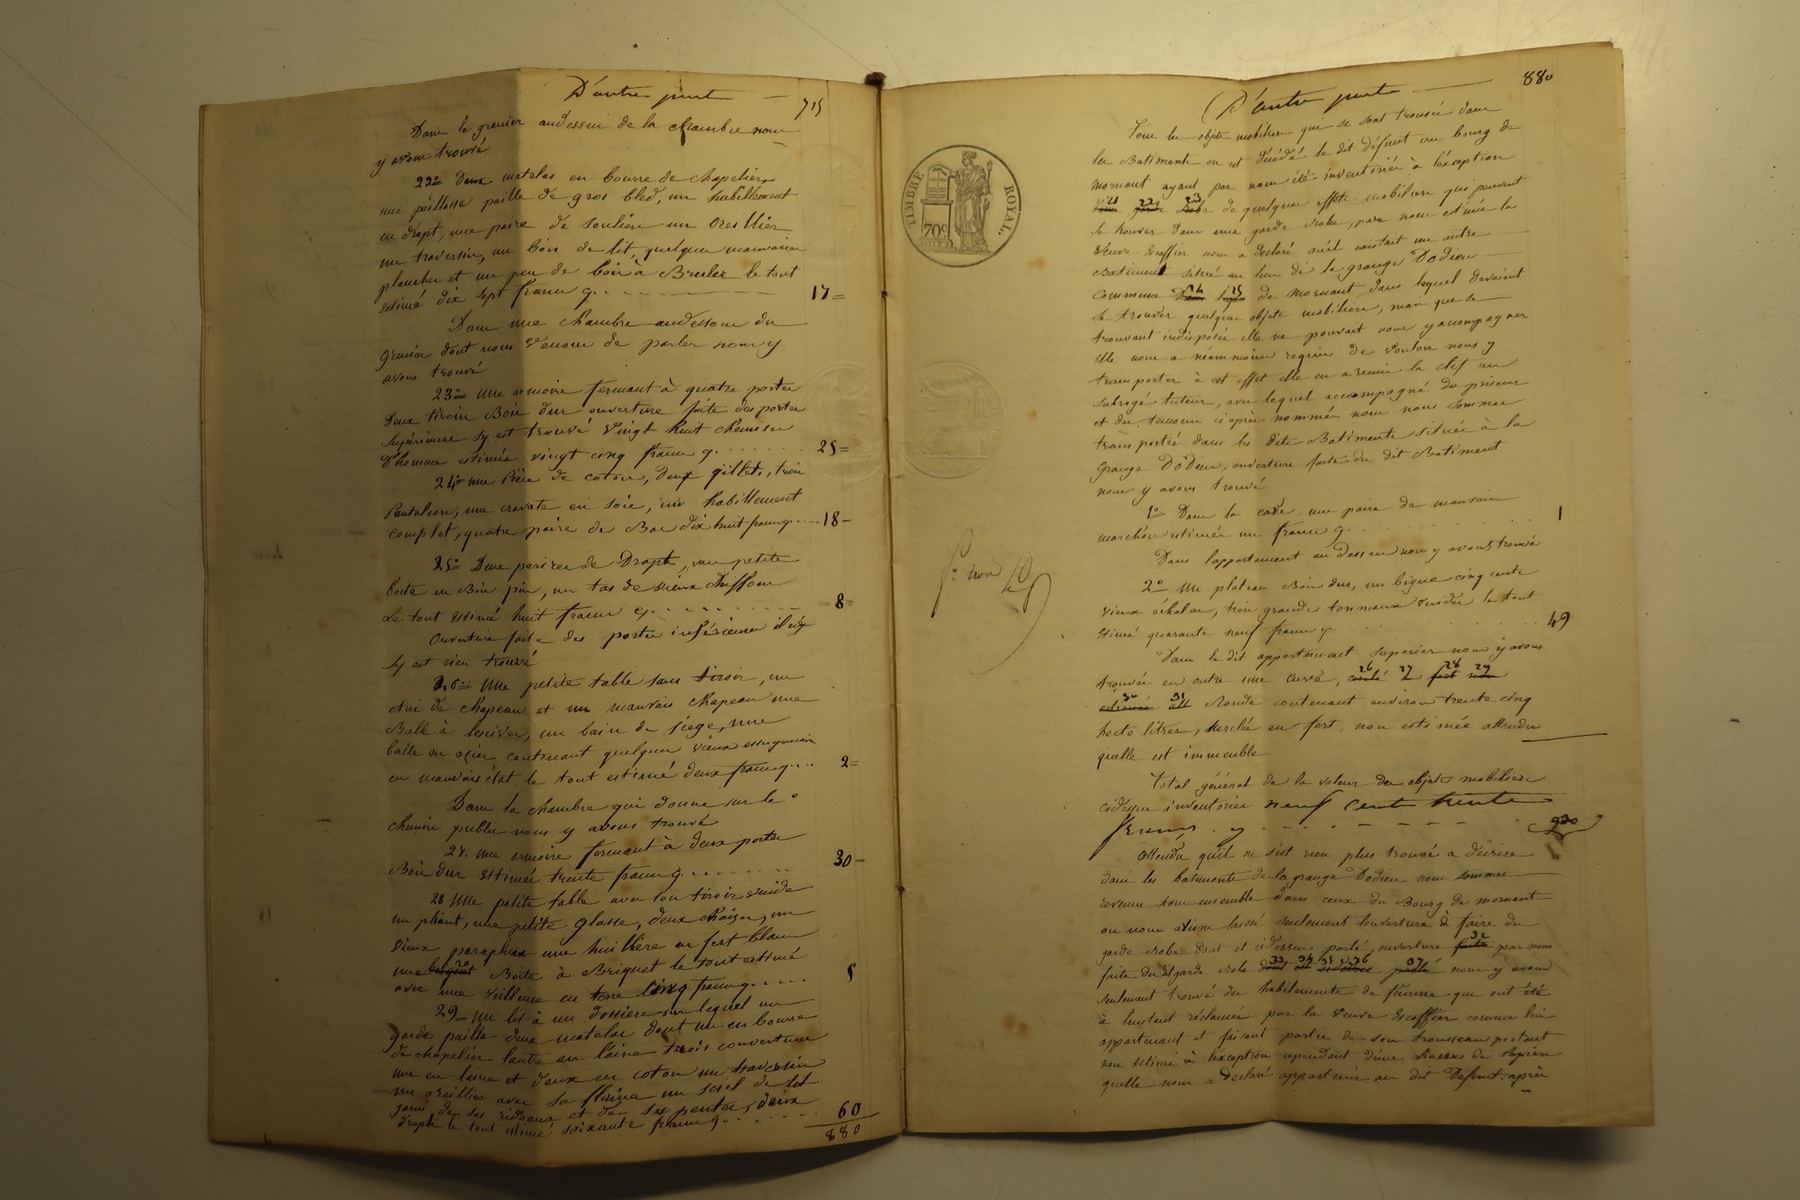 D'autre part — 715
Dans le grenier audessus de la chambre nous
y avons trouvé
22° Deux matelas en bourre de chapelier,
une paillasse paille de gros bled, un habillement
en drapt, une paire de souliers un oreillier
un traversin, un bois de lit, quelques mauvaises
planches et un peu de bois à Bruler le tout
estimé dix sept francs 17=
Dans une chambre audessous du
grenier dont nous venons de parler nous y
avons trouvé
23° Une armoire fermant à quatre portes
Deux tiroirs Bois dur ouverture faite des portes
supérieures sy est trouvé vingt huit chemises
D'homme estimées vingt cinq francs 25=
24° une Pièce de coton, deux gillets, trois
Pantalons, une cravate en soie, un habillement
complet, quatre paires de Bas dix huit francs 18=
25° Deux paires de Drapts, une petite
boite en Bois pin, un tas de vieux chiffons
Le tout estimé huit francs 8=
Ouverture faite des portes inférieures il
sy est rien trouvé
26° Une petite table sans tiroir, un
étui de chapeau et un mauvais chapeau une
Balle à lessive, un bain de siège, une
balle en osier contenant quelques vieux
en mauvais état le tout estimé deux francs 2=
Dans la chambre qui donne sur le
chemin public nous y avons trouvé
27. une armoire fermant à deux portes
Bois dur estimée trente francs 30=
28 Une petite table avec son tiroir vuide
un pliant, une petite glasse, deux chaises, un
vieux parapluie une huillère en fert blanc
une briquet Boite à Briquet le tout estimé
avec une veilleuse en terre cinq francs 5
29= Un lit à un dossier sur lequel un
garde paille deux matelas dont un en bourre
de chapelier l'autre en laine trois couvertures
une en laine et deux en coton un traversin
un oreillier avec sa flaine un ciel de lit
garni de ses rideaux et de ses pentes, deux
drapts le tout estimé soixante francs 60
880
TIMBRE ROYAL.
70c
D'autre part — 880
Tous les objets mobiliers qui se sont trouvés dans
les Batiments ou est décédé le dit défunt au bourg de
Mornant ayant par nous été inventoriés à l'exception
21 22 23 de quelques effets mobiliers qui peuvent
se trouver dans une garde robe, par nous estimée la
veuve Escoffier nous a déclaré qu'il existait un autre
Batiment situé au lieu de la grange Dodieu
commune 24 25 de Mornant, dans lequel devaient
se trouver quelques objets mobiliers, mais que se
trouvant indisposée elle ne pouvait nous y accompagner
Elle nous a néanmoins requis de vouloir nous y
transporter à cet effet elle en a remis la clef au
subrogé tuteur, avec lequel accompagné du priseur
et des témoins ciaprès nommés nous nous sommes
transportés dans les dits Batiments situés à la
grange Dodieu, ouverture faite du dit Batiment
nous y avons trouvé
1° Dans la cave une paire de mauvais
marchons estimés un franc 1
Dans l'appartement au dessus nous y avons trouvé
2° Un plateau Bois dur, un bigue cinq cents
vieux échalas, trois grands tonneaux vuides le tout
estimé quarante neuf francs 49
Dans le dit appartement superier nous y avons
trouvés en outre une cuve, 26 27 28 29
30 31 Ronde contenant environ trente cinq
hecto litres, serclée en fert, non estimée attendu
quelle est immeuble
Total général de la valeur des objets mobiliers
cidessus inventoriés neuf cent trente
francs 930
Attendu qu'il ne s'est rien plus trouvé a décrire
dans les batiments de la grange Dodieu nous sommes
revenus tous ensemble dans ceux du Bourg de mornant
ou nous avions laissé seulement l'ouverture à faire du
garde robe dont et cidessus parlé, ouverture faite 32 par nous
faite du dit garde robe dont 33 34 35 36 parlé 37 nous y avons
seulement trouvé des habilements de femme qui ont été
à l'instant réclamés par la veuve Escoffier comme lui
appartenant et faisant partie de son trousseau portant
non estimé à l'exception cependant d'une
quelle nous a déclaré appartenir au dit Défunt. après